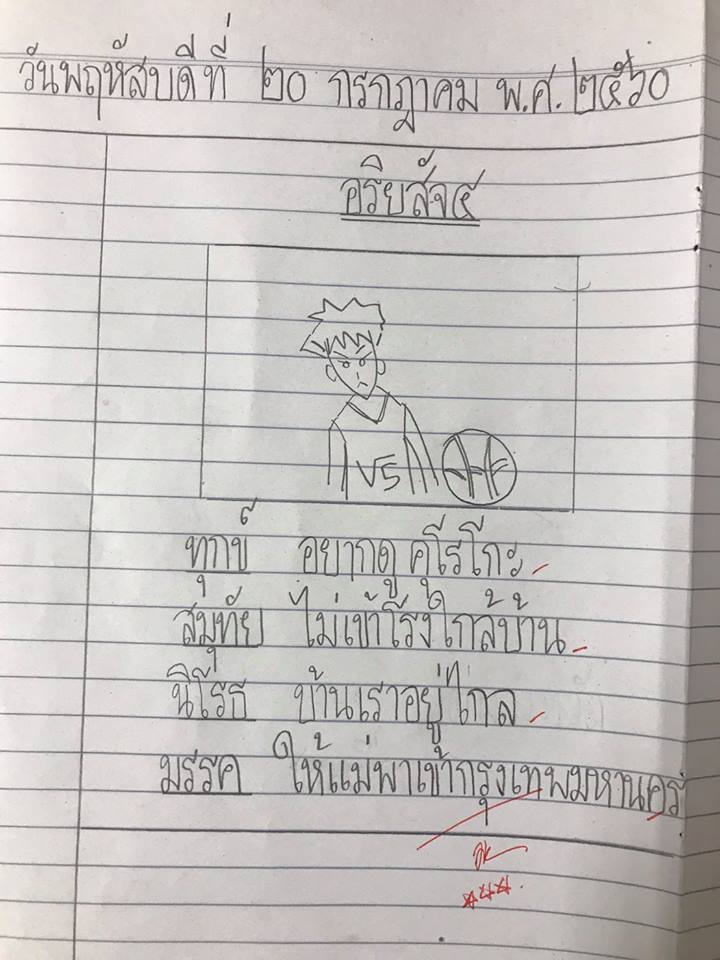 วันพฤหัสบดีที่ ๒๐ กรกฎาคม พ.ศ. ๒๕๖๐
อริยสัจ๔
V5
ทุกข์ อยากดู คุโรโกะ
สมุทัย ไม่เข้าโรงใกล้บ้าน
นิโรธ บ้านเราอยู่ไกล
มรรค ให้แม่พาเข้ากรุงเทพมหานคร